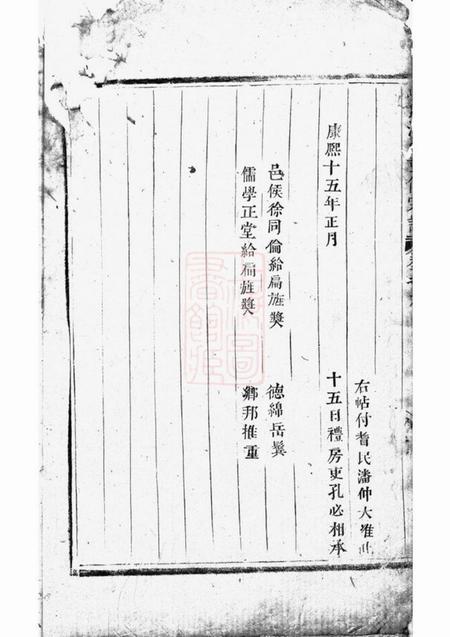 右帖付耆民潘仲大准此
康熙十五年正月 十五日禮房吏孔必相承
邑侯徐同倫給扁旌獎 德綿岳巽
儒學正堂給扁旌獎 鄉邦推重